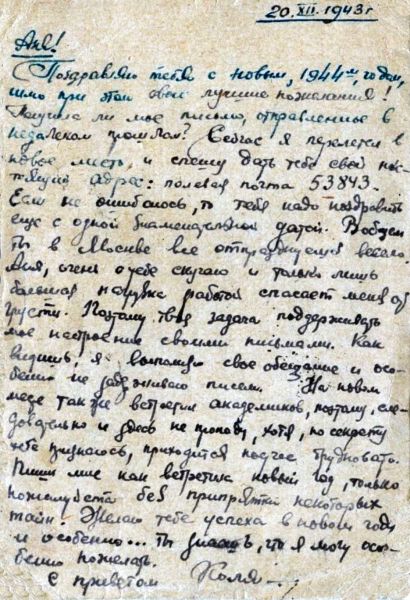 20.XII.1943 г
Аня!
Поздравляю тебя с новым, 1944м, годом,
шлю при этом свои лучшие пожелания!
Получила ли мое письмо, отправленное в
недалеком прошлом? Сейчас я перелетел в
новое место и спешу дать тебе свой нас-
тоящий адрес: полевая почта 53843.
Если не ошибаюсь, то тебя надо поздравить
еще с одной знаменательной датой. Вообщем
ты в Москве все отпразднуешь весело.
Аня, очень о тебе скучаю и только лишь
большая нагрузка работой спасает меня от
грусти. Поэтому твоя задача поддерживать
мое настроение своими письмами. Как
видишь, я выполняю свое обещание и осо-
бенно не задерживаю писем. На новом
месте также встретил академиков, поэтому, сле-
довательно и здесь не пропаду, хотя, по секрету
тебе признаюсь, приходится подчас трудновато.
Пиши мне как встретила новый год, только
пожалуйста без припрятки некоторых
тайн. Желаю тебе успеха в новом году
и особенно... Ты знаешь, что я могу осо-
бенно пожелать.
С приветом Коля